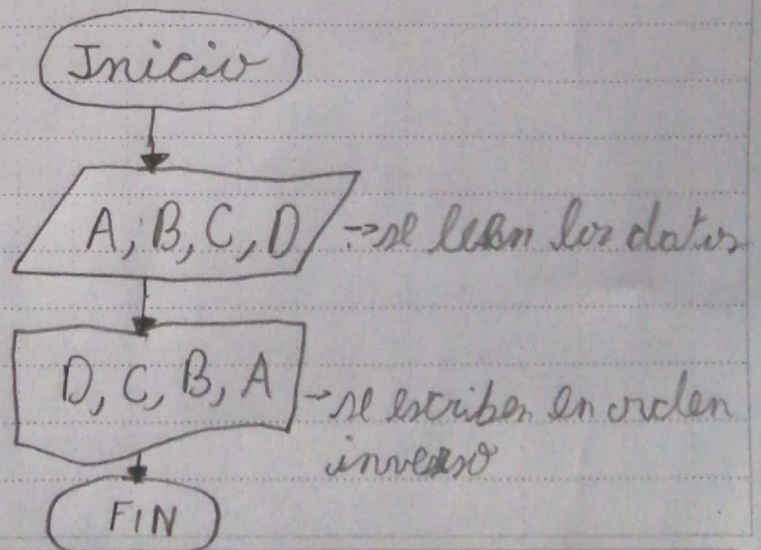 Inicio
A, B, C, D → se leen los datos
D, C, B, A → se escriben en orden
inverso
FIN